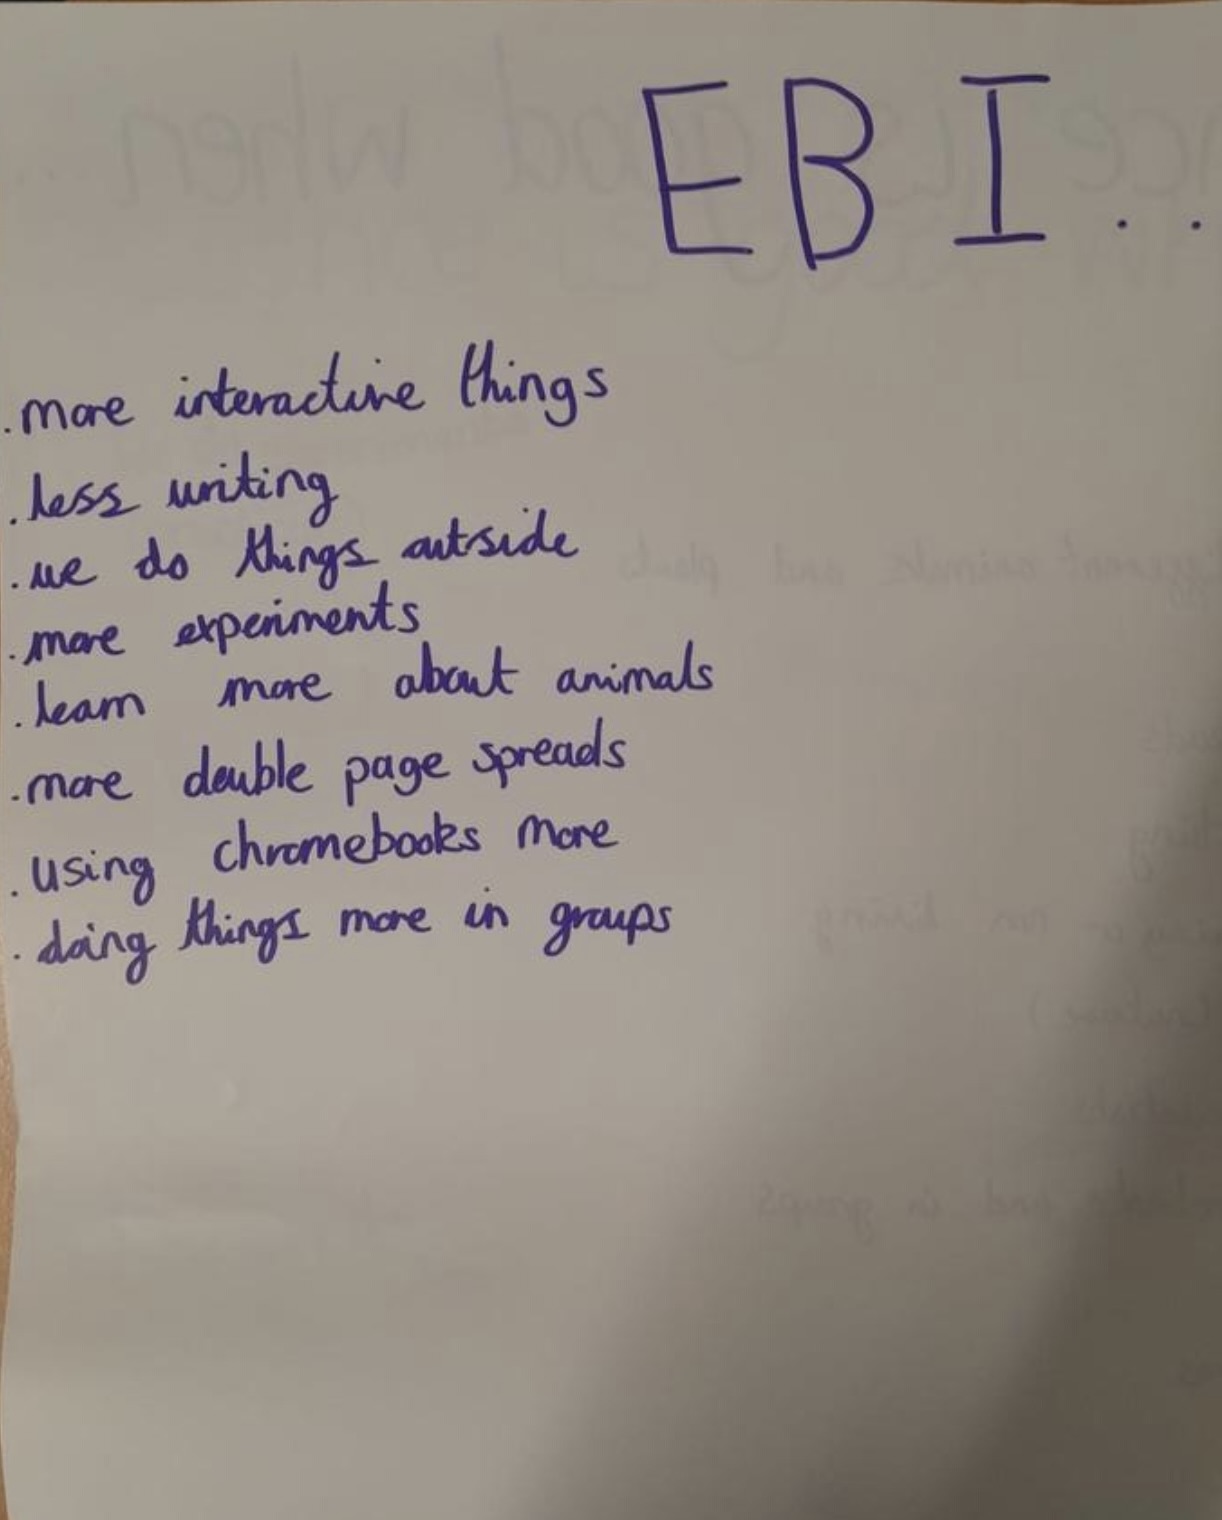 EBI..
. more interactive things
. less writing
. we do things outside
. more experiments
. learn more about animals
. more double page spreads
. using chromebooks more
. doing things more in groups